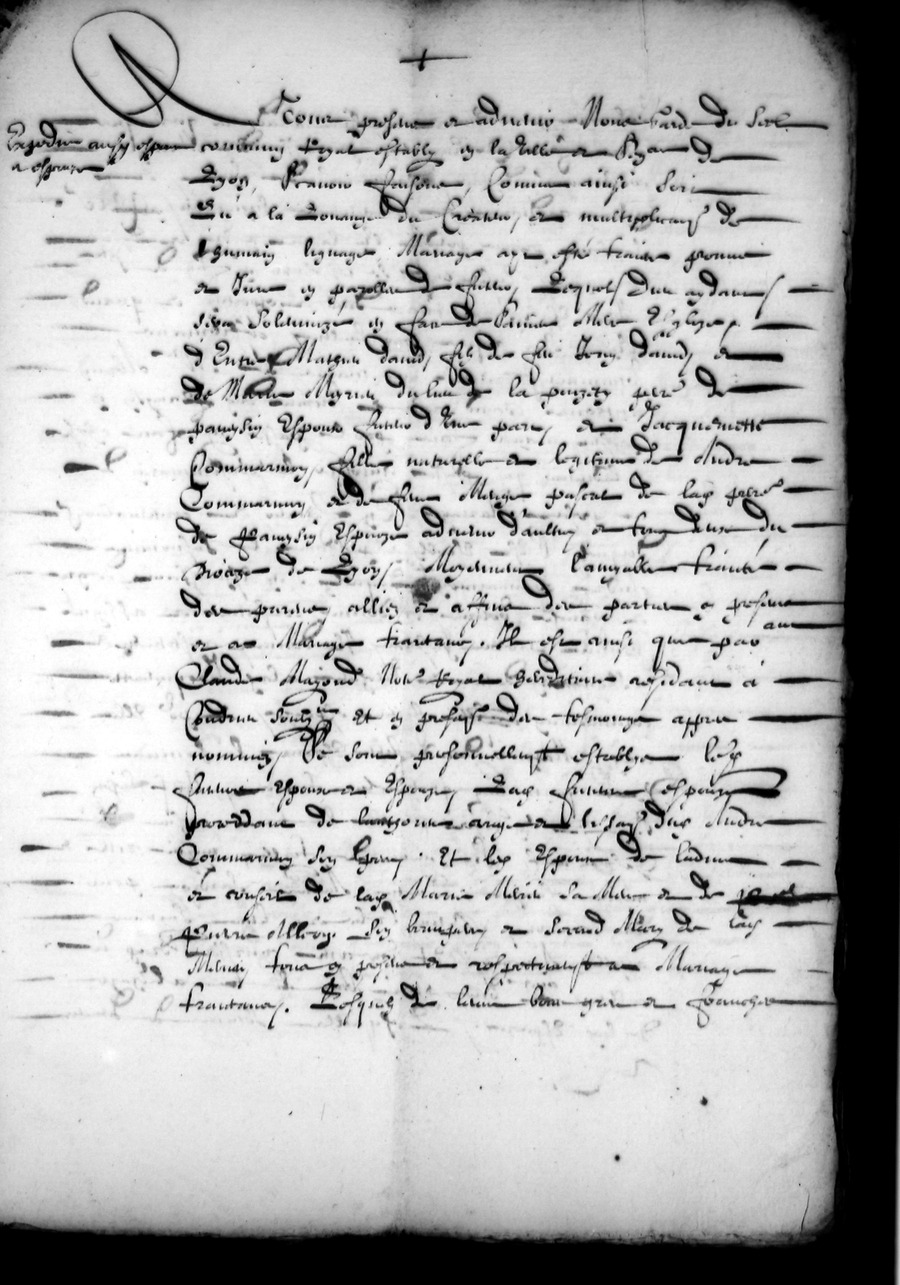 A Tous presens et advenir Nous Garde du Scel
Expedié aux espoux
a espouze
commung Royal estably en la ville et de
Lyon, scavoir faisons, Comme ainsi soit
Qu'a la Louange du Createur, et multiplication de
Lhumain lignage Mariage ayt esté traité promis
et Juré en parolle de futur, Lequel Dieu aydant
sera Solemnizé en face de Saincte Mere Esglize
d'Entre Mathieu david, filz de feu Jeny david, et
de Marie Meynier du lieu de la perre de
pavesin Espoux futur d'Une part, et Jacquemette
Commarmon, fille naturelle et legitime de Andre
Commarmon et de feue pascal de lad perre
de pavezin Espouze advenir d'aultre et tous deux du
Dioceze de Lyon, Moyennant l'amyable traicté
des parens alliez et affins des parties en presence
et au Mariage traictans. Il est ainsi que par
Claude Mazond Note Royal hereditaire residant a
Condrieu et en presence des tesmoings appres
nommez, se sont personnellement establys lesd
futurs Espoux et Espouze, Lad future espouze
procedant de lauthorite dud Andre
Commarmon son pere, Et led Espoux de ladvis
et conseil de lad Marie sa Mere et de
Pierre son beaupere et second Mary de lad
tous en presence et respectivement au Mariage
traictans. Lesquels de leurs bon gré et franche